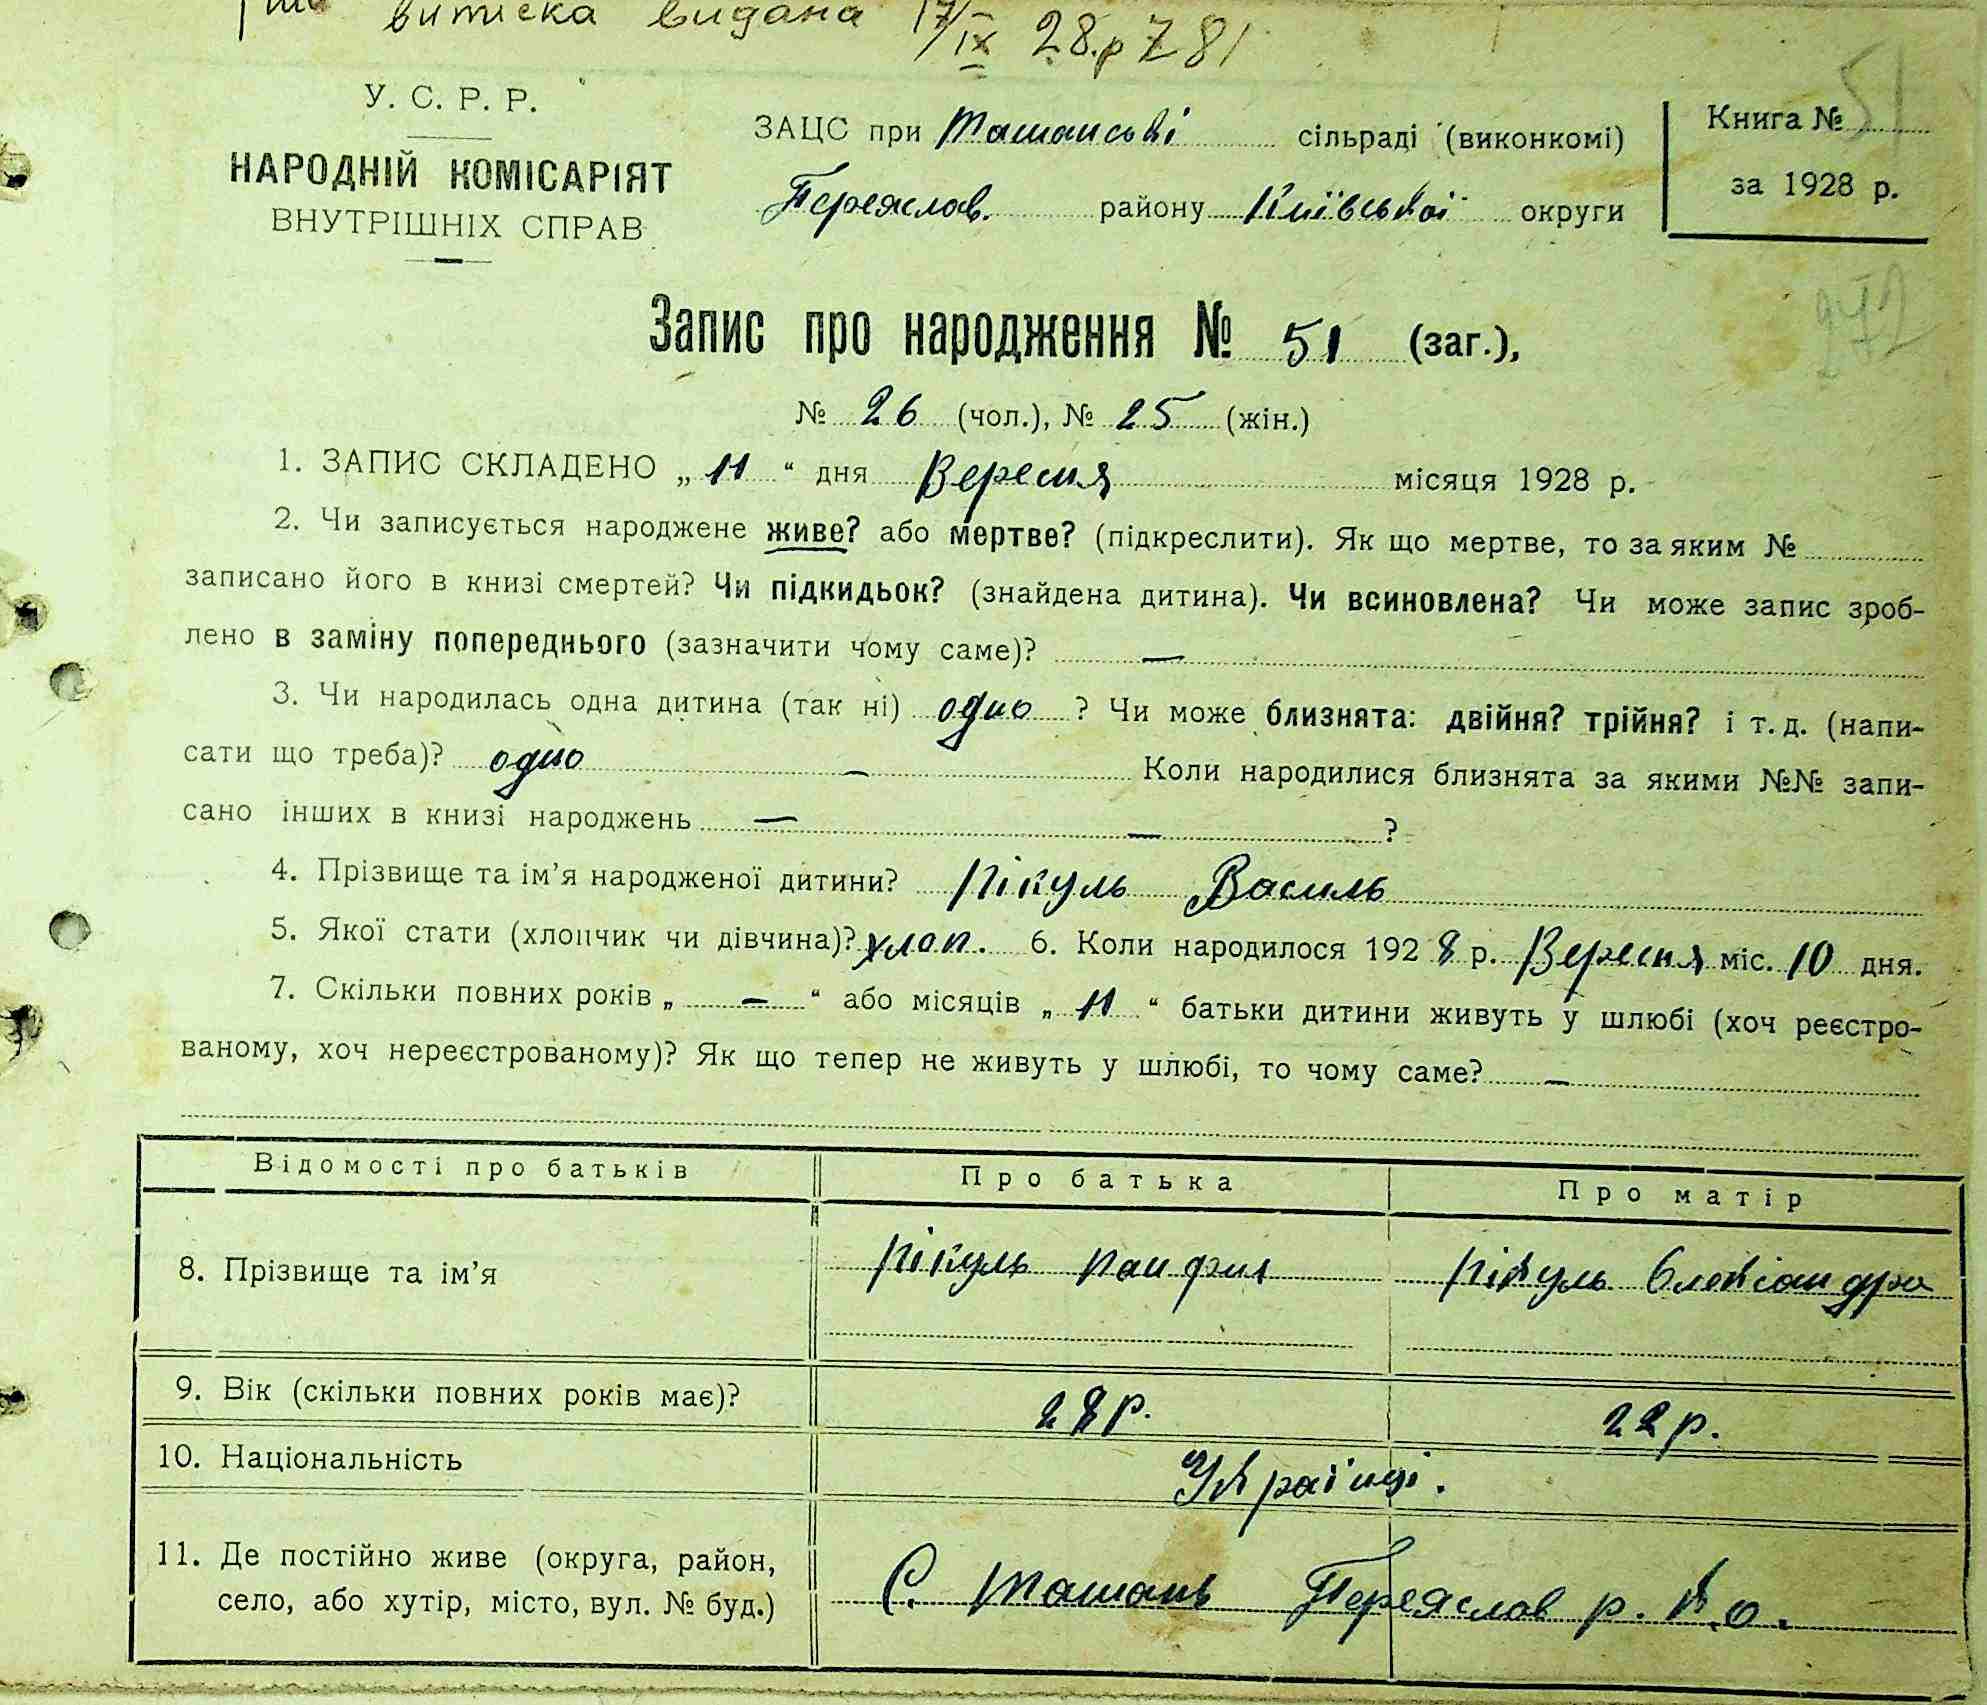 витиска видана 17/IX 28.р
У. С. Р. Р.
НАРОДНІЙ КОМІСАРІЯТ
ВНУТРІШНІХ СПРАВ
ЗАЦС при Ташанські сільраді (виконкомі)
Переяслав. району Київської округи
Книга № 51
за 1928 р.
272
Запис про народження № 51 (заг.),
№ 26 (чол.), № 25 (жін.)
1. ЗАПИС СКЛАДЕНО „ 11 “ дня Вересня місяця 1928 р.
2. Чи записується народжене живе? або мертве? (підкреслити). Як що мертве, то за яким №
записано його в книзі смертей? Чи підкидьок? (знайдена дитина). Чи всиновлена? Чи може запис зроб-
лено в заміну попереднього (зазначити чому саме)? —
3. Чи народилась одна дитина (так ні) одно ? Чи може близнята: двійня? трійня? і т. д. (напи-
сати що треба)? одно — Коли народилися близнята за якими №№ запи-
сано інших в книзі народжень — — ?
4. Прізвище та ім’я народженої дитини? Пікуль Василь
5. Якої стати (хлопчик чи дівчина)? хлоп. 6. Коли народилося 1928 р. Вересня міс. 10 дня.
7. Скільки повних років „ — “ або місяців „ 11 “ батьки дитини живуть у шлюбі (хоч реєстро-
ваному, хоч нереєстрованому)? Як що тепер не живуть у шлюбі, то чому саме? —
Відомості про батьків Про батька Про матір
8. Прізвище та ім’я Пікуль Панфил Пікуль Олександра
9. Вік (скільки повних років має)? 28 р. 22 р.
10. Національність Українці.
11. Де постійно живе (округа, район, село, або хутір, місто, вул. № буд.) С. Ташань Переяслав р. К. о.